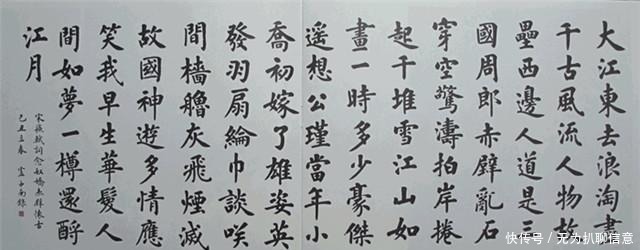 大江東去浪淘盡
千古風流人物故
壘西邊人道是三
國周郎赤壁亂石
穿空驚濤拍岸捲
起千堆雪江山如
畫一時多少豪傑
遥想公瑾當年小
喬初嫁了雄姿英
發羽扇綸巾談咲
間檣艪灰飛煙滅
故國神遊多情應
笑我早生華髮人
間如夢一樽還酹
江月
宋蘇軾詞念奴嬌赤壁懷古
己丑立春
快传号/无为扒聊信意